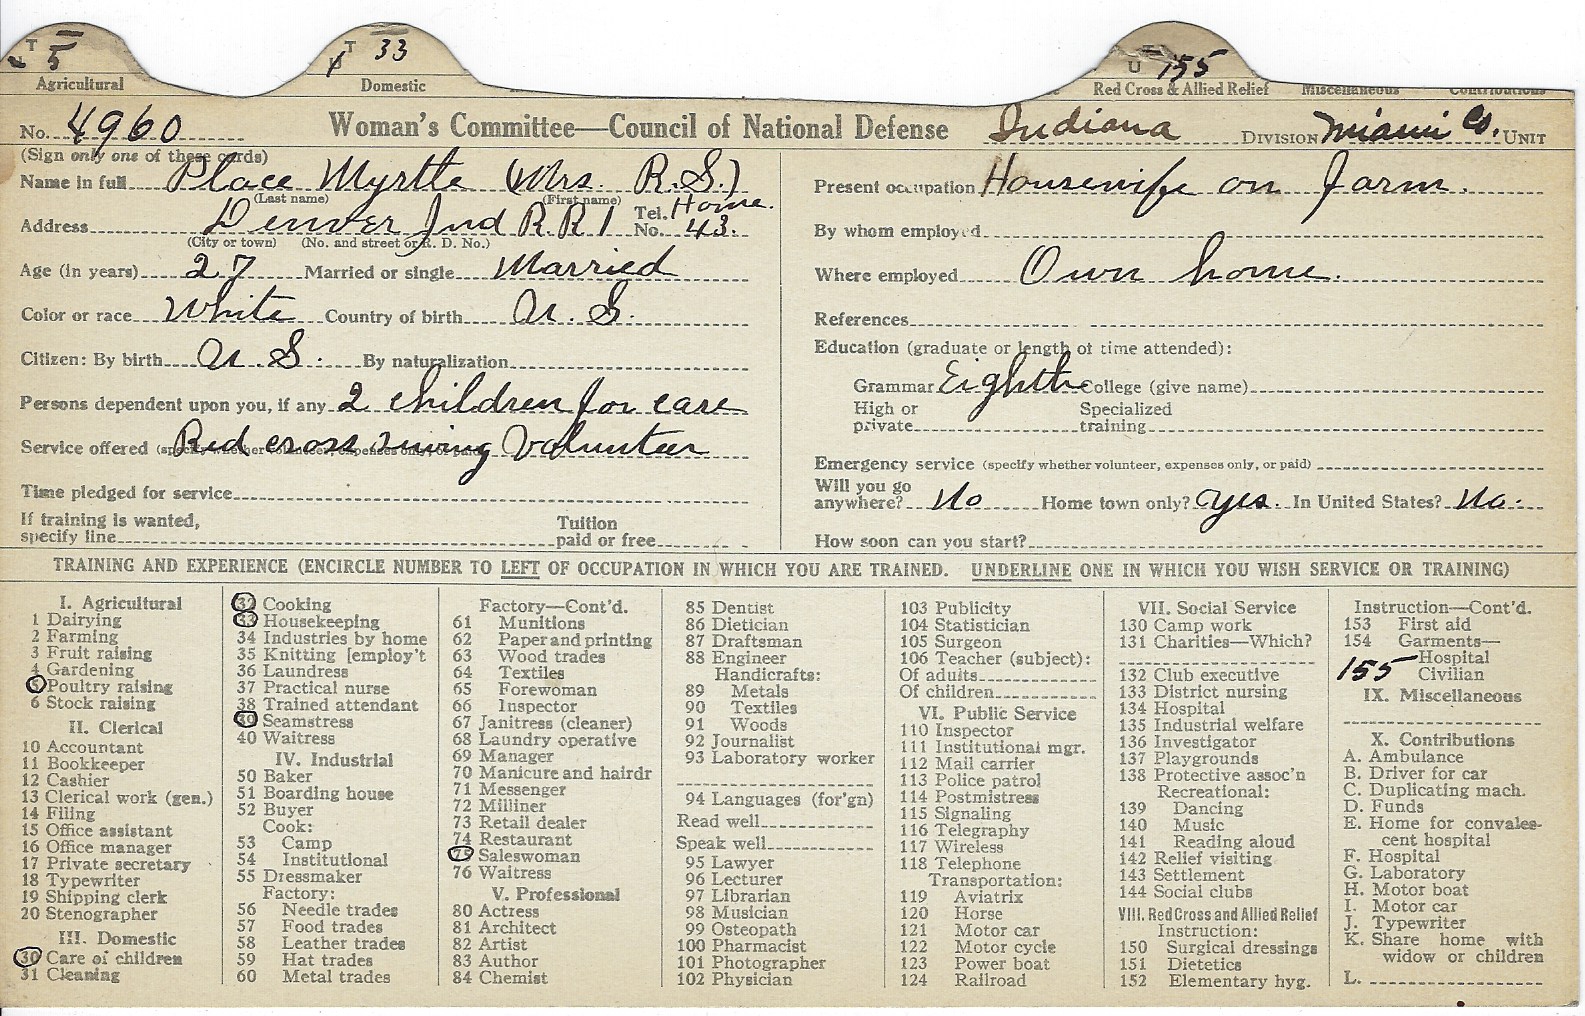 T 5 T 33 U 155
Agricultural Domestic Red Cross & Allied Relief Miscellaneous Contributions
No. 4960 Woman's Committee—Council of National Defense Indiana DIVISION Miami Co. UNIT
(Sign only one of these cards)
Name in full Place Myrtle (Mrs. R.S.)
(Last name) (First name)
Address Denver Ind R.R 1 Tel. No. Home 43.
(City or town) (No. and street or R. D. No.)
Age (in years) 27 Married or single Married
Color or race White Country of birth U. S.
Citizen: By birth U S. By naturalization
Persons dependent upon you, if any 2 children for care
Service offered (specify whether volunteer, expenses only, or paid) Red cross sewing Volunteer
Time pledged for service
If training is wanted, Tuition
specify line paid or free
Present occupation Housewife on farm.
By whom employed
Where employed Own home.
References
Education (graduate or length of time attended):
Grammar Eighth College (give name)
High or Specialized
private training
Emergency service (specify whether volunteer, expenses only, or paid)
Will you go
anywhere? No Home town only? Yes. In United States? No.
How soon can you start?
TRAINING AND EXPERIENCE (ENCIRCLE NUMBER TO LEFT OF OCCUPATION IN WHICH YOU ARE TRAINED. UNDERLINE ONE IN WHICH YOU WISH SERVICE OR TRAINING)
I. Agricultural
1 Dairying
2 Farming
3 Fruit raising
4 Gardening
5 Poultry raising
6 Stock raising
II. Clerical
10 Accountant
11 Bookkeeper
12 Cashier
13 Clerical work (gen.)
14 Filing
15 Office assistant
16 Office manager
17 Private secretary
18 Typewriter
19 Shipping clerk
20 Stenographer
III. Domestic
30 Care of children
31 Cleaning
32 Cooking
33 Housekeeping
34 Industries by home
35 Knitting [employ't
36 Laundress
37 Practical nurse
38 Trained attendant
39 Seamstress
40 Waitress
IV. Industrial
50 Baker
51 Boarding house
52 Buyer
Cook:
53 Camp
54 Institutional
55 Dressmaker
Factory:
56 Needle trades
57 Food trades
58 Leather trades
59 Hat trades
60 Metal trades
Factory—Cont'd.
61 Munitions
62 Paper and printing
63 Wood trades
64 Textiles
65 Forewoman
66 Inspector
67 Janitress (cleaner)
68 Laundry operative
69 Manager
70 Manicure and hairdr
71 Messenger
72 Milliner
73 Retail dealer
74 Restaurant
75 Saleswoman
76 Waitress
V. Professional
80 Actress
81 Architect
82 Artist
83 Author
84 Chemist
85 Dentist
86 Dietician
87 Draftsman
88 Engineer
Handicrafts:
89 Metals
90 Textiles
91 Woods
92 Journalist
93 Laboratory worker
94 Languages (for'gn)
Read well
Speak well
95 Lawyer
96 Lecturer
97 Librarian
98 Musician
99 Osteopath
100 Pharmacist
101 Photographer
102 Physician
103 Publicity
104 Statistician
105 Surgeon
106 Teacher (subject):
Of adults
Of children
VI. Public Service
110 Inspector
111 Institutional mgr.
112 Mail carrier
113 Police patrol
114 Postmistress
115 Signaling
116 Telegraphy
117 Wireless
118 Telephone
Transportation:
119 Aviatrix
120 Horse
121 Motor car
122 Motor cycle
123 Power boat
124 Railroad
VII. Social Service
130 Camp work
131 Charities—Which?
132 Club executive
133 District nursing
134 Hospital
135 Industrial welfare
136 Investigator
137 Playgrounds
138 Protective assoc'n
Recreational:
139 Dancing
140 Music
141 Reading aloud
142 Relief visiting
143 Settlement
144 Social clubs
VIII. Red Cross and Allied Relief
Instruction:
150 Surgical dressings
151 Dietetics
152 Elementary hyg.
Instruction—Cont'd.
153 First aid
154 Garments—
Hospital
155 Civilian
IX. Miscellaneous
X. Contributions
A. Ambulance
B. Driver for car
C. Duplicating mach.
D. Funds
E. Home for convales-
cent hospital
F. Hospital
G. Laboratory
H. Motor boat
I. Motor car
J. Typewriter
K. Share home with
widow or children
L.